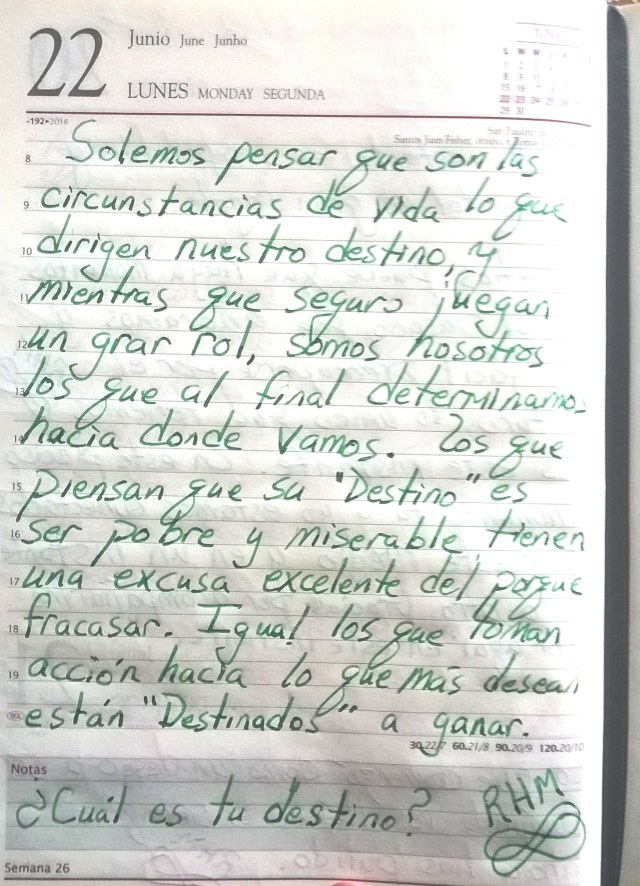 22
Junio June Junho
LUNES MONDAY SEGUNDA
-192•2016
8 Solemos pensar que son las
9 circunstancias de vida lo que
10 dirigen nuestro destino, y
11 mientras que seguro juegan
12 un grar rol, somos nosotros
13 los que al final determinamos
14 hacia donde vamos. Los que
15 piensan que su "Destino" es
16 ser pobre y miserable, tienen
17 una excusa excelente del porque
18 fracasar. Igual los que toman
19 acción hacia lo que más desean
están "Destinados" a ganar.
30.22/7 60.21/8 90.20/9 120.20/10
Notas
¿Cuál es tu destino? RHM
Semana 26